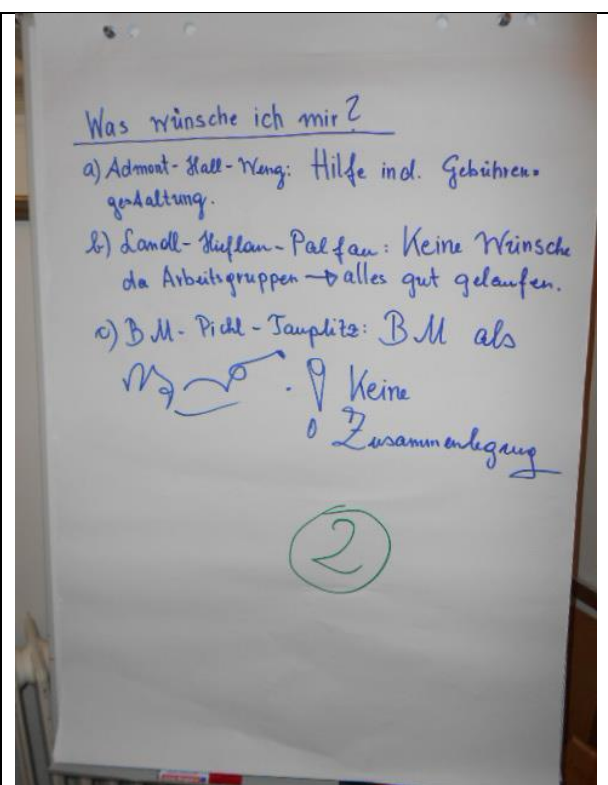 Was wünsche ich mir?
a) Admont-Hall-Weng: Hilfe in d. Gebühren-
gestaltung.
b) Landl-Hieflau-Palfau: Keine Wünsche
da Arbeitsgruppen → alles gut gelaufen.
c) BM-Pichl-Tauplitz: BM als
! Keine
Zusammenlegung
2